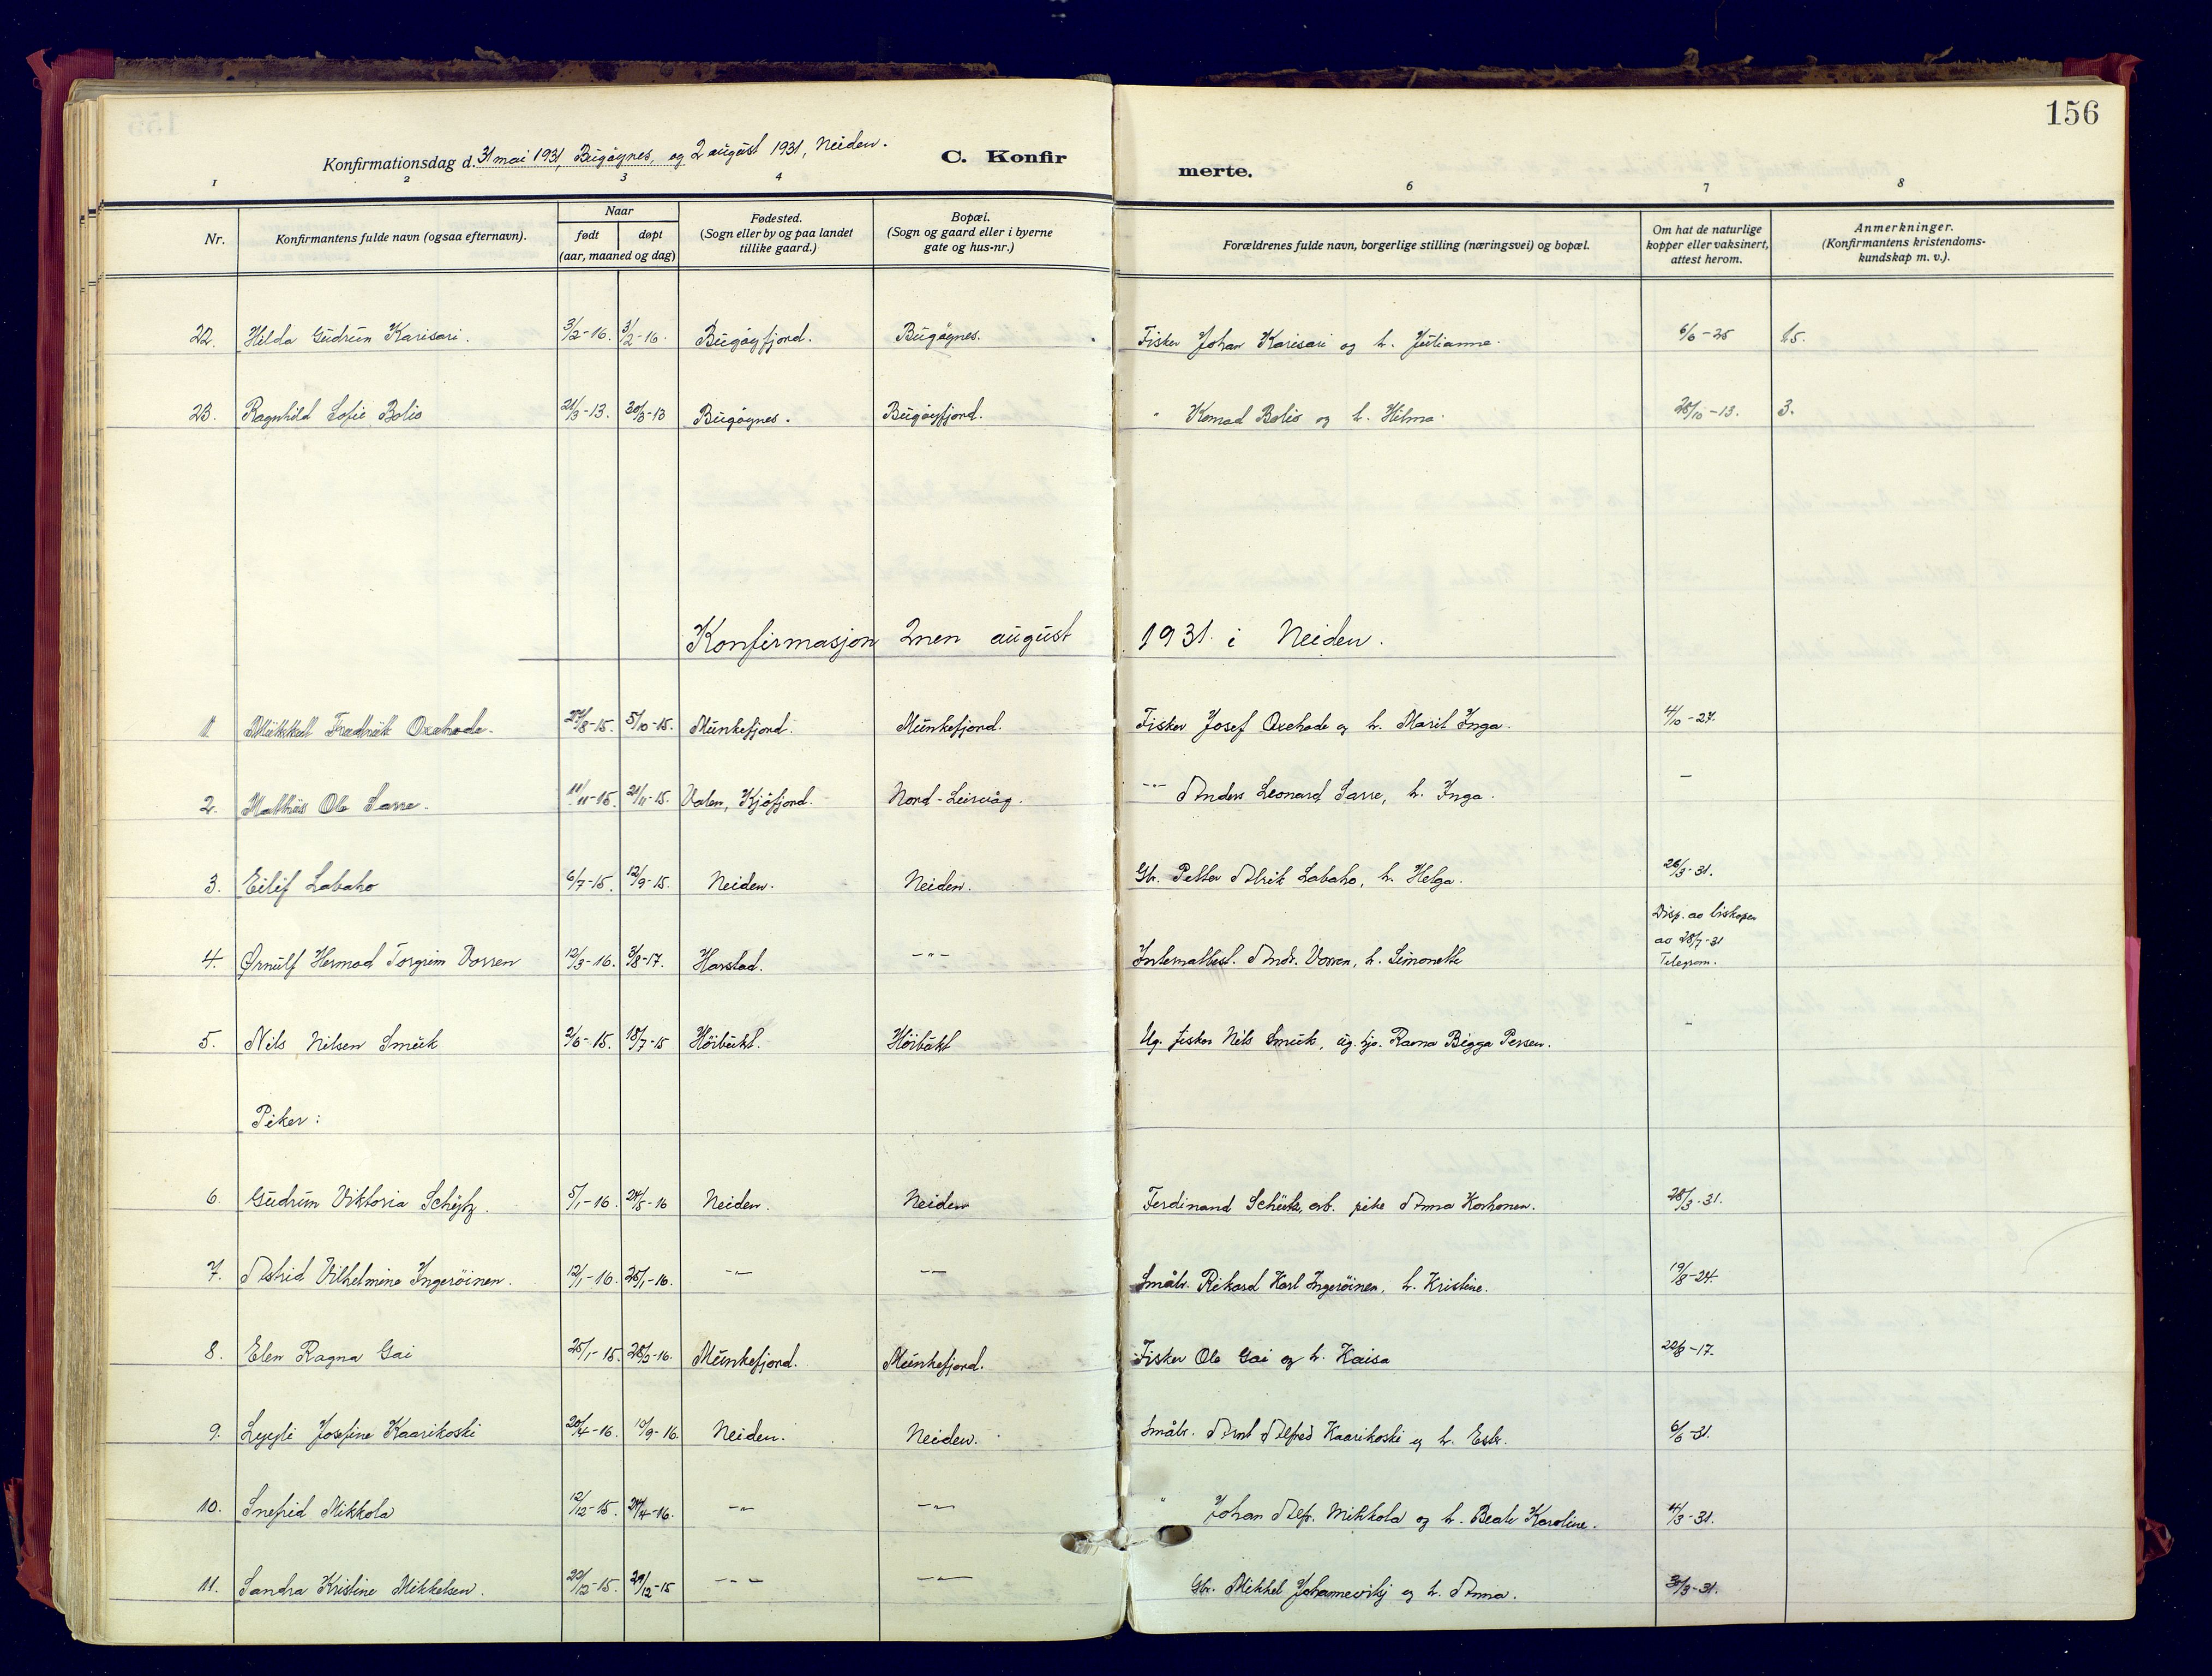 156
Konfirmationsdag d. 31 mai 1931, Bugøynes, og 2 august 1931, Neiden. C. Konfir merte.
1 2 3 4 6 7 8
Nr. Konfirmantens fulde navn (ogsaa efternavn). Naar født døpt (aar, maaned og dag) Fødested. (Sogn eller by og paa landet tillike gaard.) Bopæl. (Sogn og gaard eller i byerne gate og hus-nr.) Forældrenes fulde navn, borgerlige stilling (næringsvei) og bopæl. Om hat de naturlige kopper eller vaksinert, attest herom. Anmerkninger. (Konfirmantens kristendoms-kundskap m. v.).
22. Hilda Gudrun Karisari. 3/2-16. 3/2-16. Bugøyfjord. Bugøynes. Fisker Johan Karisari og h. Julianne. 6/6-25 15.
23. Ragnhild Sofie Bolis 21/3-13. 30/3-13 Bugøynes. Bugøyfjord. " Konrad Bolis og h. Hilma. 28/10-13. 3.
Konfirmasjon 2nen august 1931. i Neiden.
1 Mikkel Fredrik Oxehode. 27/8-15. 5/10-15. Munkefjord. Munkefjord. Fisker Josef Oxehode og h. Marit Inga. 4/10-27.
2. Mathis Ole Sarre. 11/11-15. 21/11-15. Valen, Kjøfjord. Nord-Leirvåg. -"- Anders Leonard Sarre, h. Inga. -
3. Eilif Labaho 6/7-15. 12/9-15. Neiden. Neiden. Gb. Petter Alrik Labaho, h. Helga. 26/3-31.
4. Ørnulf Hermod Torgrim Vorren 12/3-16. 3/8-17. Harstad. -"- Internatbest. Andr. Vorren, h. Simonette Disp. av biskopen
av 28/7-31
Telegram.
5. Nils Nilsen Smuk 2/6-15. 18/7-15 Høibukt. Høibukt Ug. fisker Nils Smuk, ug. tjp. Ravna Bigga Persen. -
Piker:
6. Gudrun Viktoria Schytz. 5/1-16 24/5-16 Neiden. Neiden Ferdinand Schütz, arb. pike Anna Korhonen. 28/3-31.
7. Astrid Vilhelmine Ingerøinen. 12/1-16. 25/1-16. -"- -"- Småbr. Rikard Karl Ingerøinen, h. Kristine. 19/8-24.
8. Elen Ragna Gai 25/1-15. 28/3-16. Munkefjord. Munkefjord. Fisker Ole Gai og h. Kaisa 22/8-17.
9. Lyyli Josefine Kaarikoski 20/4-16. 10/9-16. Neiden. Neiden. Småbr. Arnt Alfred Kaarikoski og h. Ester. 6/6-31.
10. Snefrid Mikkola 12/12-15. 24/4-16. -"- -"- " Johan Alfr. Mikkola og h. Beate Karoline. 4/3-31.
11. Sandra Kristine Mikkelsen. 22/12-15. 29/12-15 -"- -"- Gbr. Mikkel Johannevitsj og h. Anna. 30/3-31.